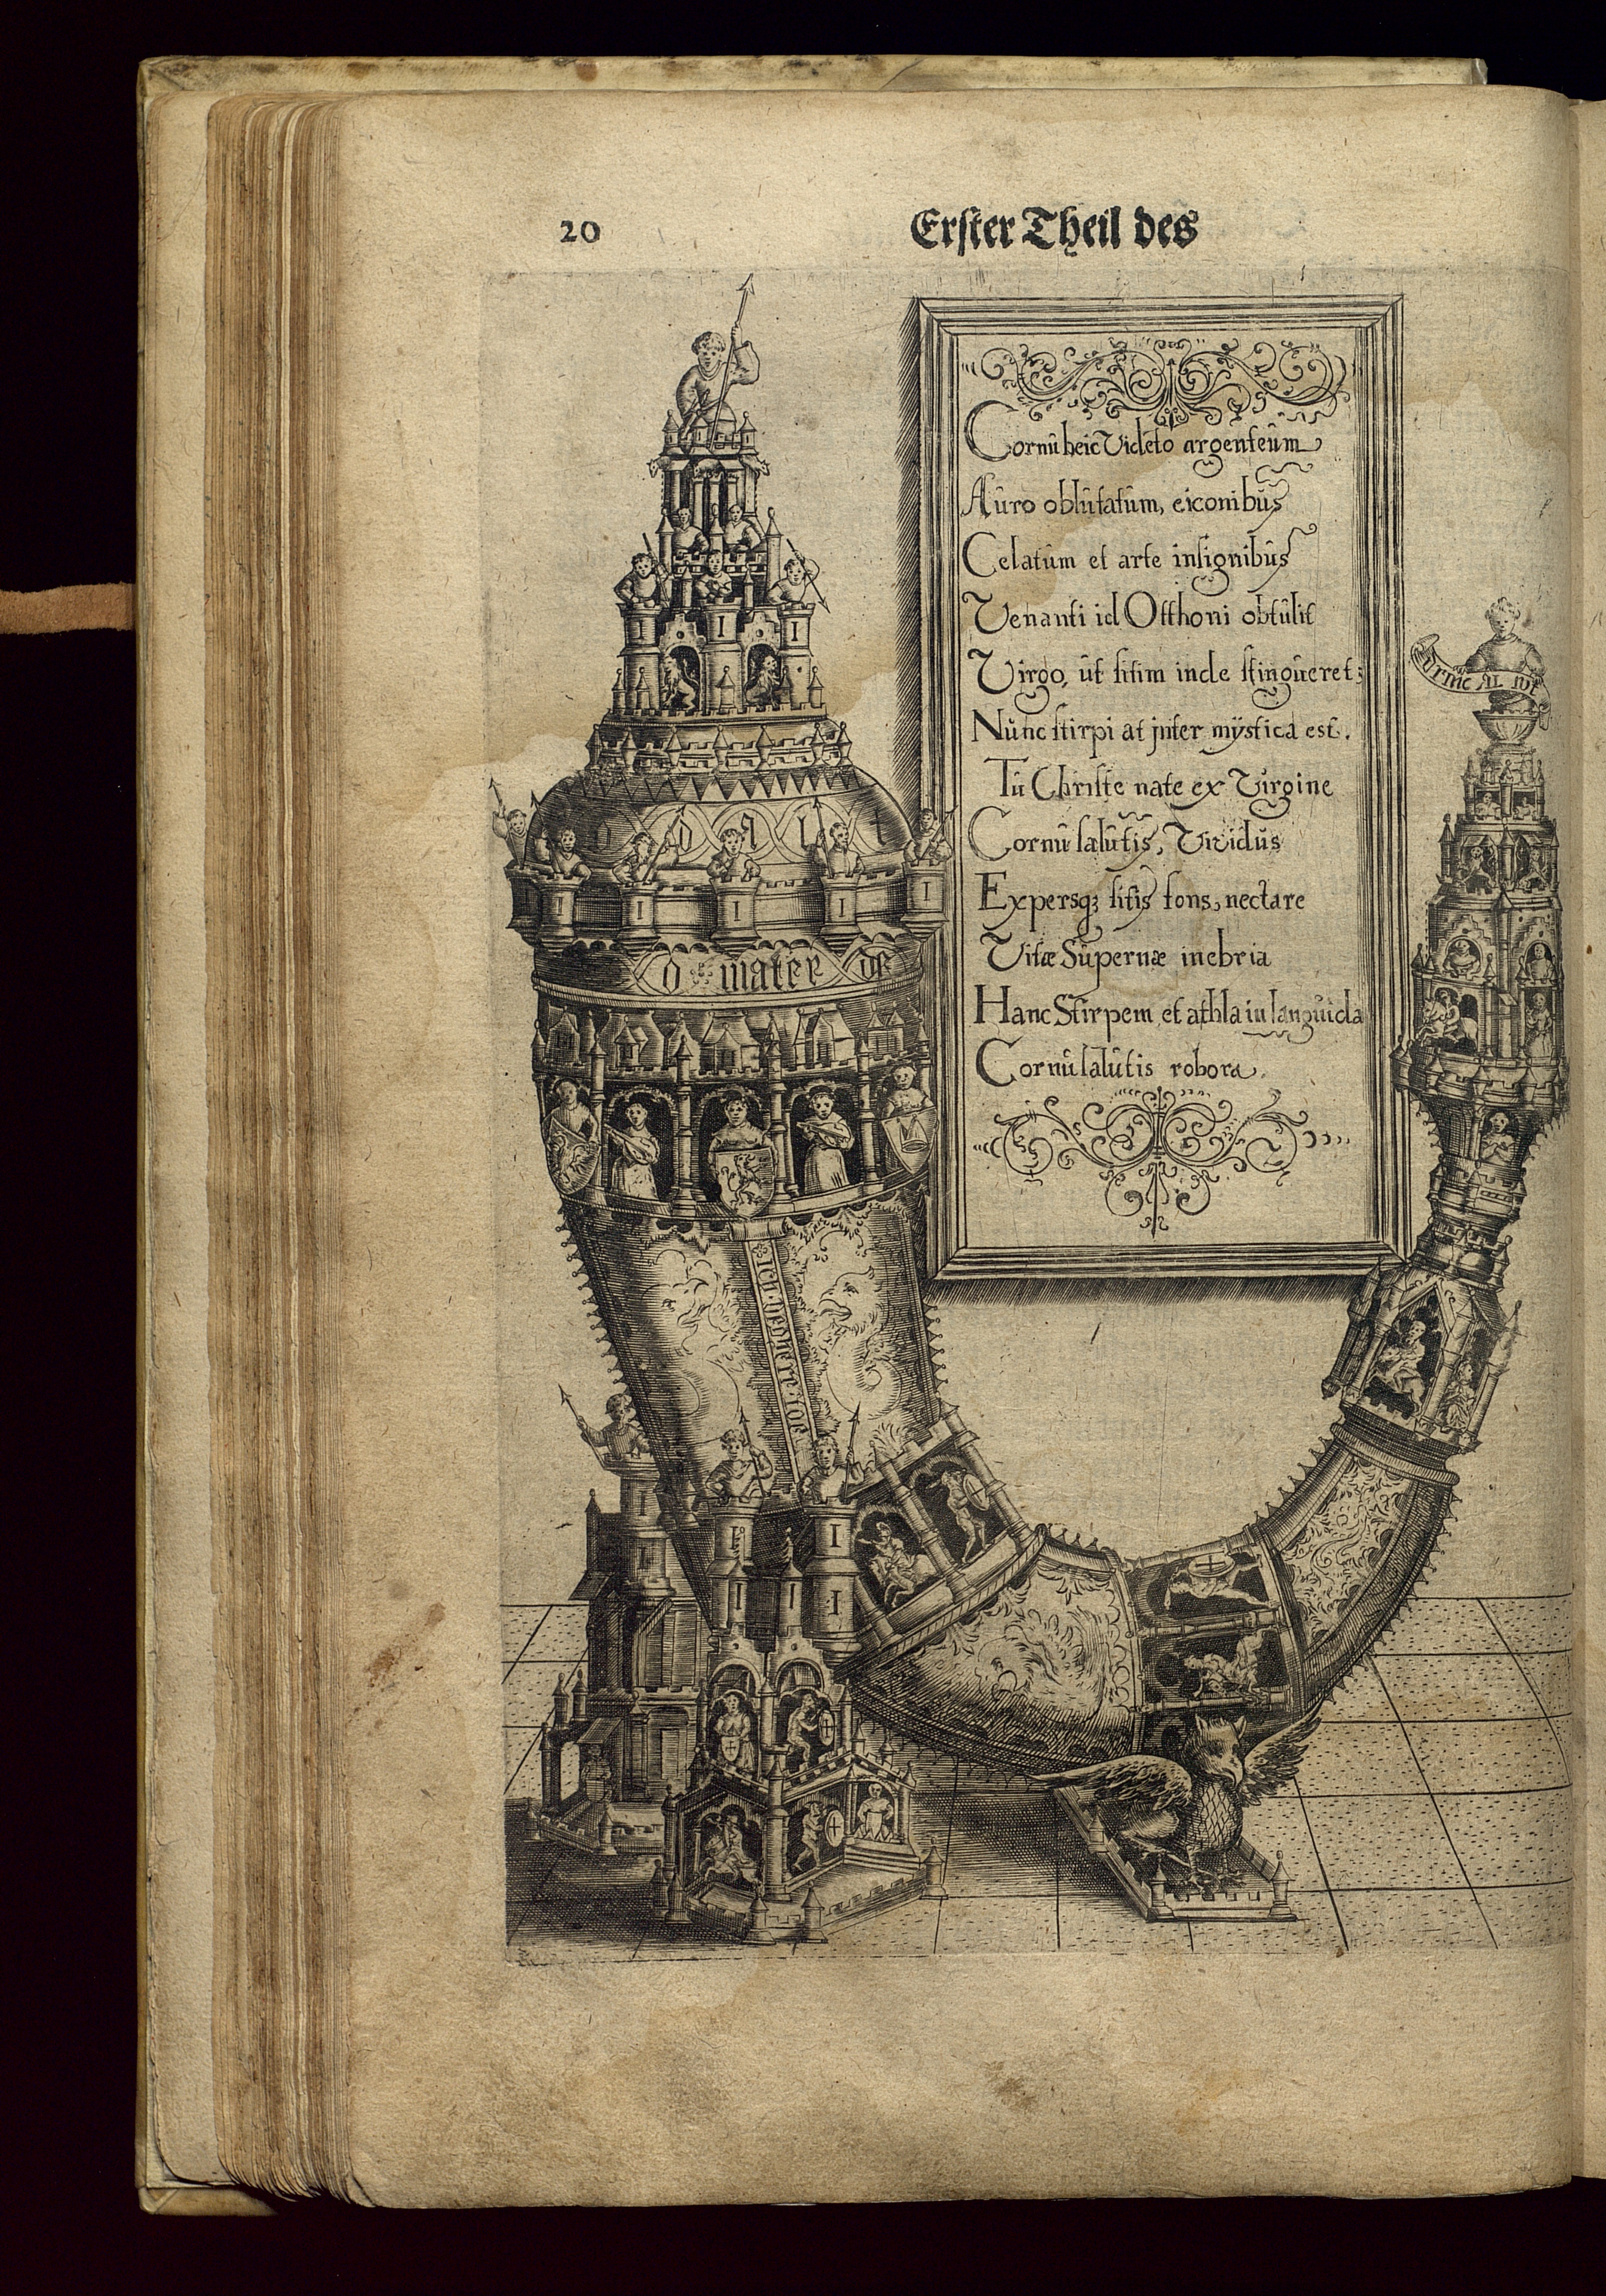 20
Erster Theil des
Cornû heic Vidéto argenteûm
Aûro oblûtatûm, eiconibûs
Celatûm et arte insignibûs
Venanti id Otthoni obtûlit
Virgo, ût sitim inde stingûeret;
Nûnc stirpi at jnter mÿstica est.
Tû Christe nate ex Virgine
Cornû salûtis, Vividûs
Expersq; sitis fons, nectare
Vitæ Sûpernæ inebria
Hanc Stirpem, et athla in langûida
Cornû salûtis robora.
DRINC AL WT
o mater de
I I I
I I I I I
I I
I I I